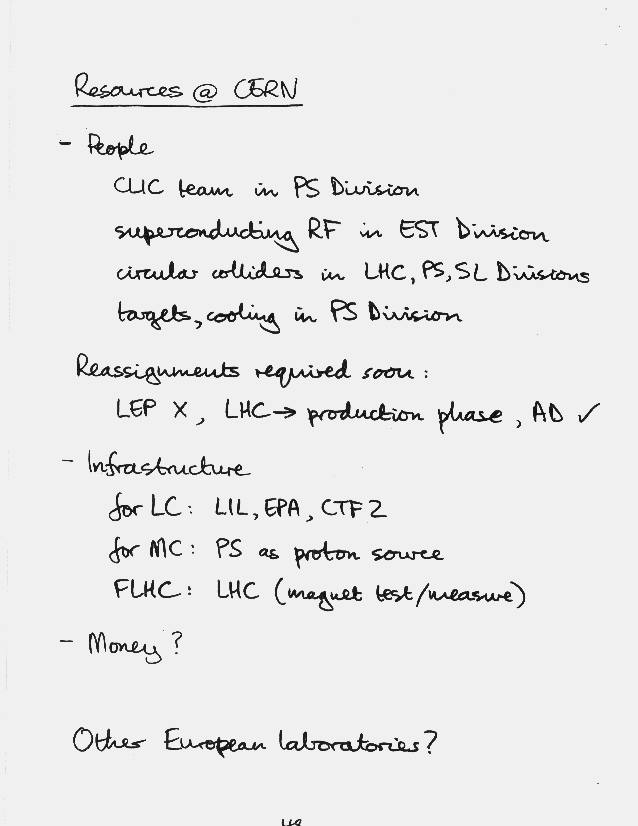 Resources @ CERN
- People
CLIC team in PS Division
superconducting RF in EST Division
circular colliders in LHC, PS, SL Divisions
targets, cooling in PS Division
Reassignments required soon :
LEP X , LHC → production phase , AD ✓
- Infrastructure
for LC : LIL, EPA, CTF 2
for MC : PS as proton source
FLHC : LHC (magnet test/measure)
- Money ?
Other European laboratories?